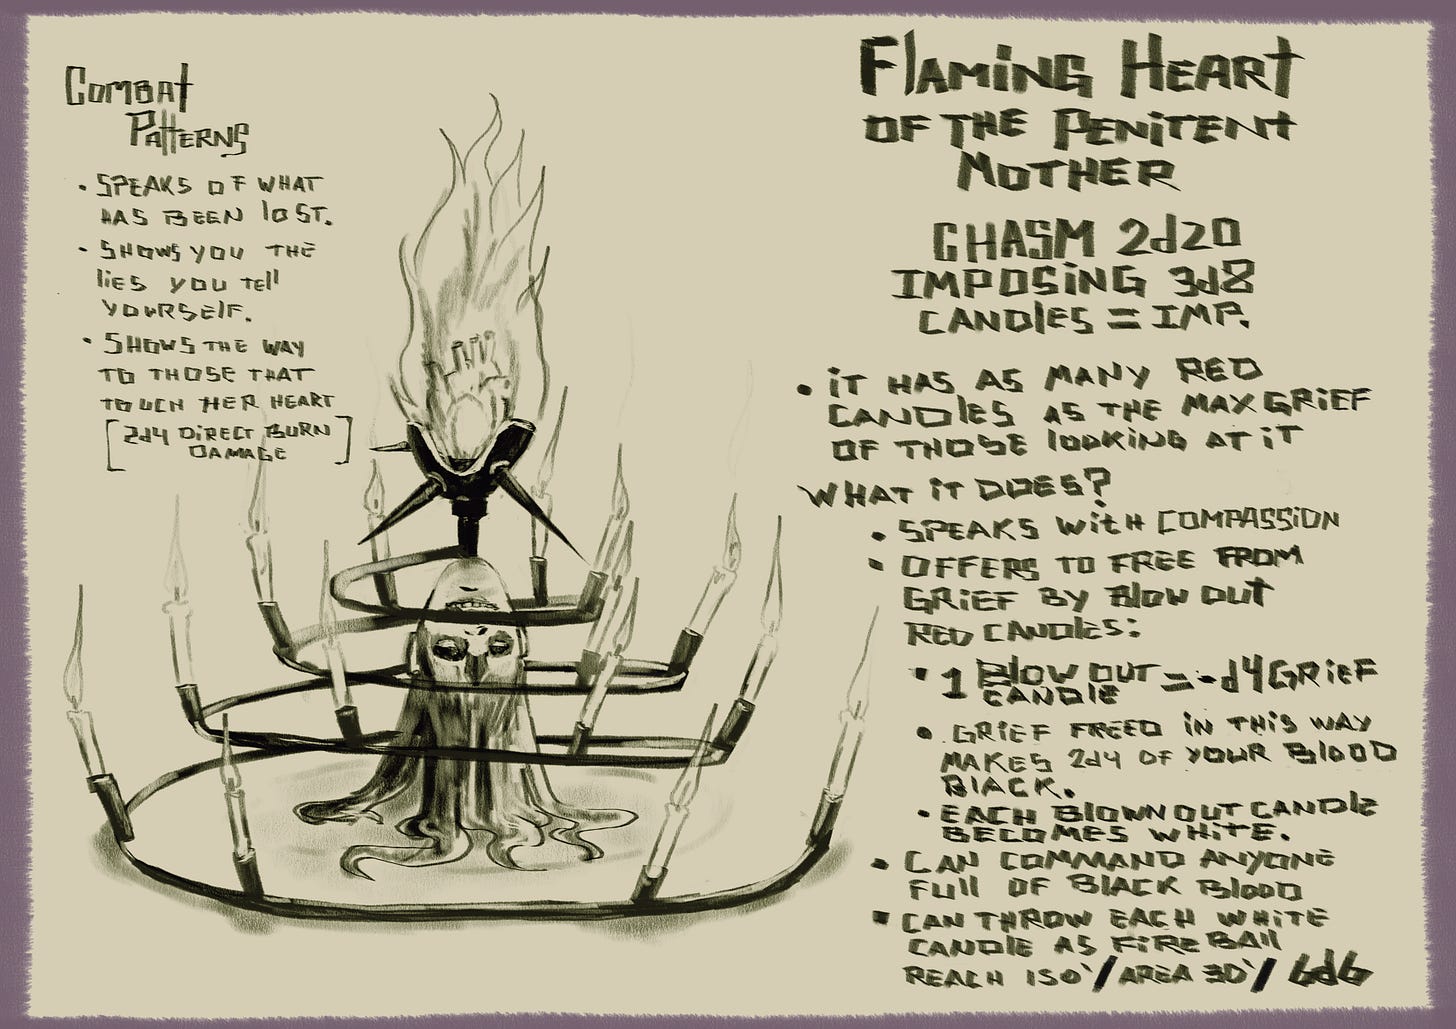 Combat
Patterns
• SPEAKS OF WHAT
HAS BEEN lOST.
• SHOWS YOU THE
liES YOU TEll
YOURSElF.
• SHOWS THE WAY
TO THOSE THAT
TOUCH HER HEART
[2d4 DIRECT BURN
DAMAGE]
FlAMiNG HEARt
OF THE PENiTENt
MOTHER
CHASM 2d20
IMPOSiNG 3d8
CANDlES = IMP.
• iT HAS AS MANY RED
CANDlES AS THE MAX GRiEF
OF THOSE lOOKiNG AT iT
WHAT iT DOES?
• SPEAKS WiTH COMPASSiON
• OFFERS TO FREE FROM
GRiEF BY BlOW OUT
RED CANDlES:
• 1 BlOW OUT
CANDlE = -d4 GRiEF
• GRiEF FREED iN THiS WAY
MAKES 2d4 OF YOUR BlOOD
BlACK.
• EACH BlOWN OUT CANDlE
BECOMES WHiTE.
• CAN COMMAND ANYONE
FUll OF BlACK BlOOD
• CAN THROW EACH WHiTE
CANDlE AS FiRE BAll
REACH 150'/AREA 30'/6d6